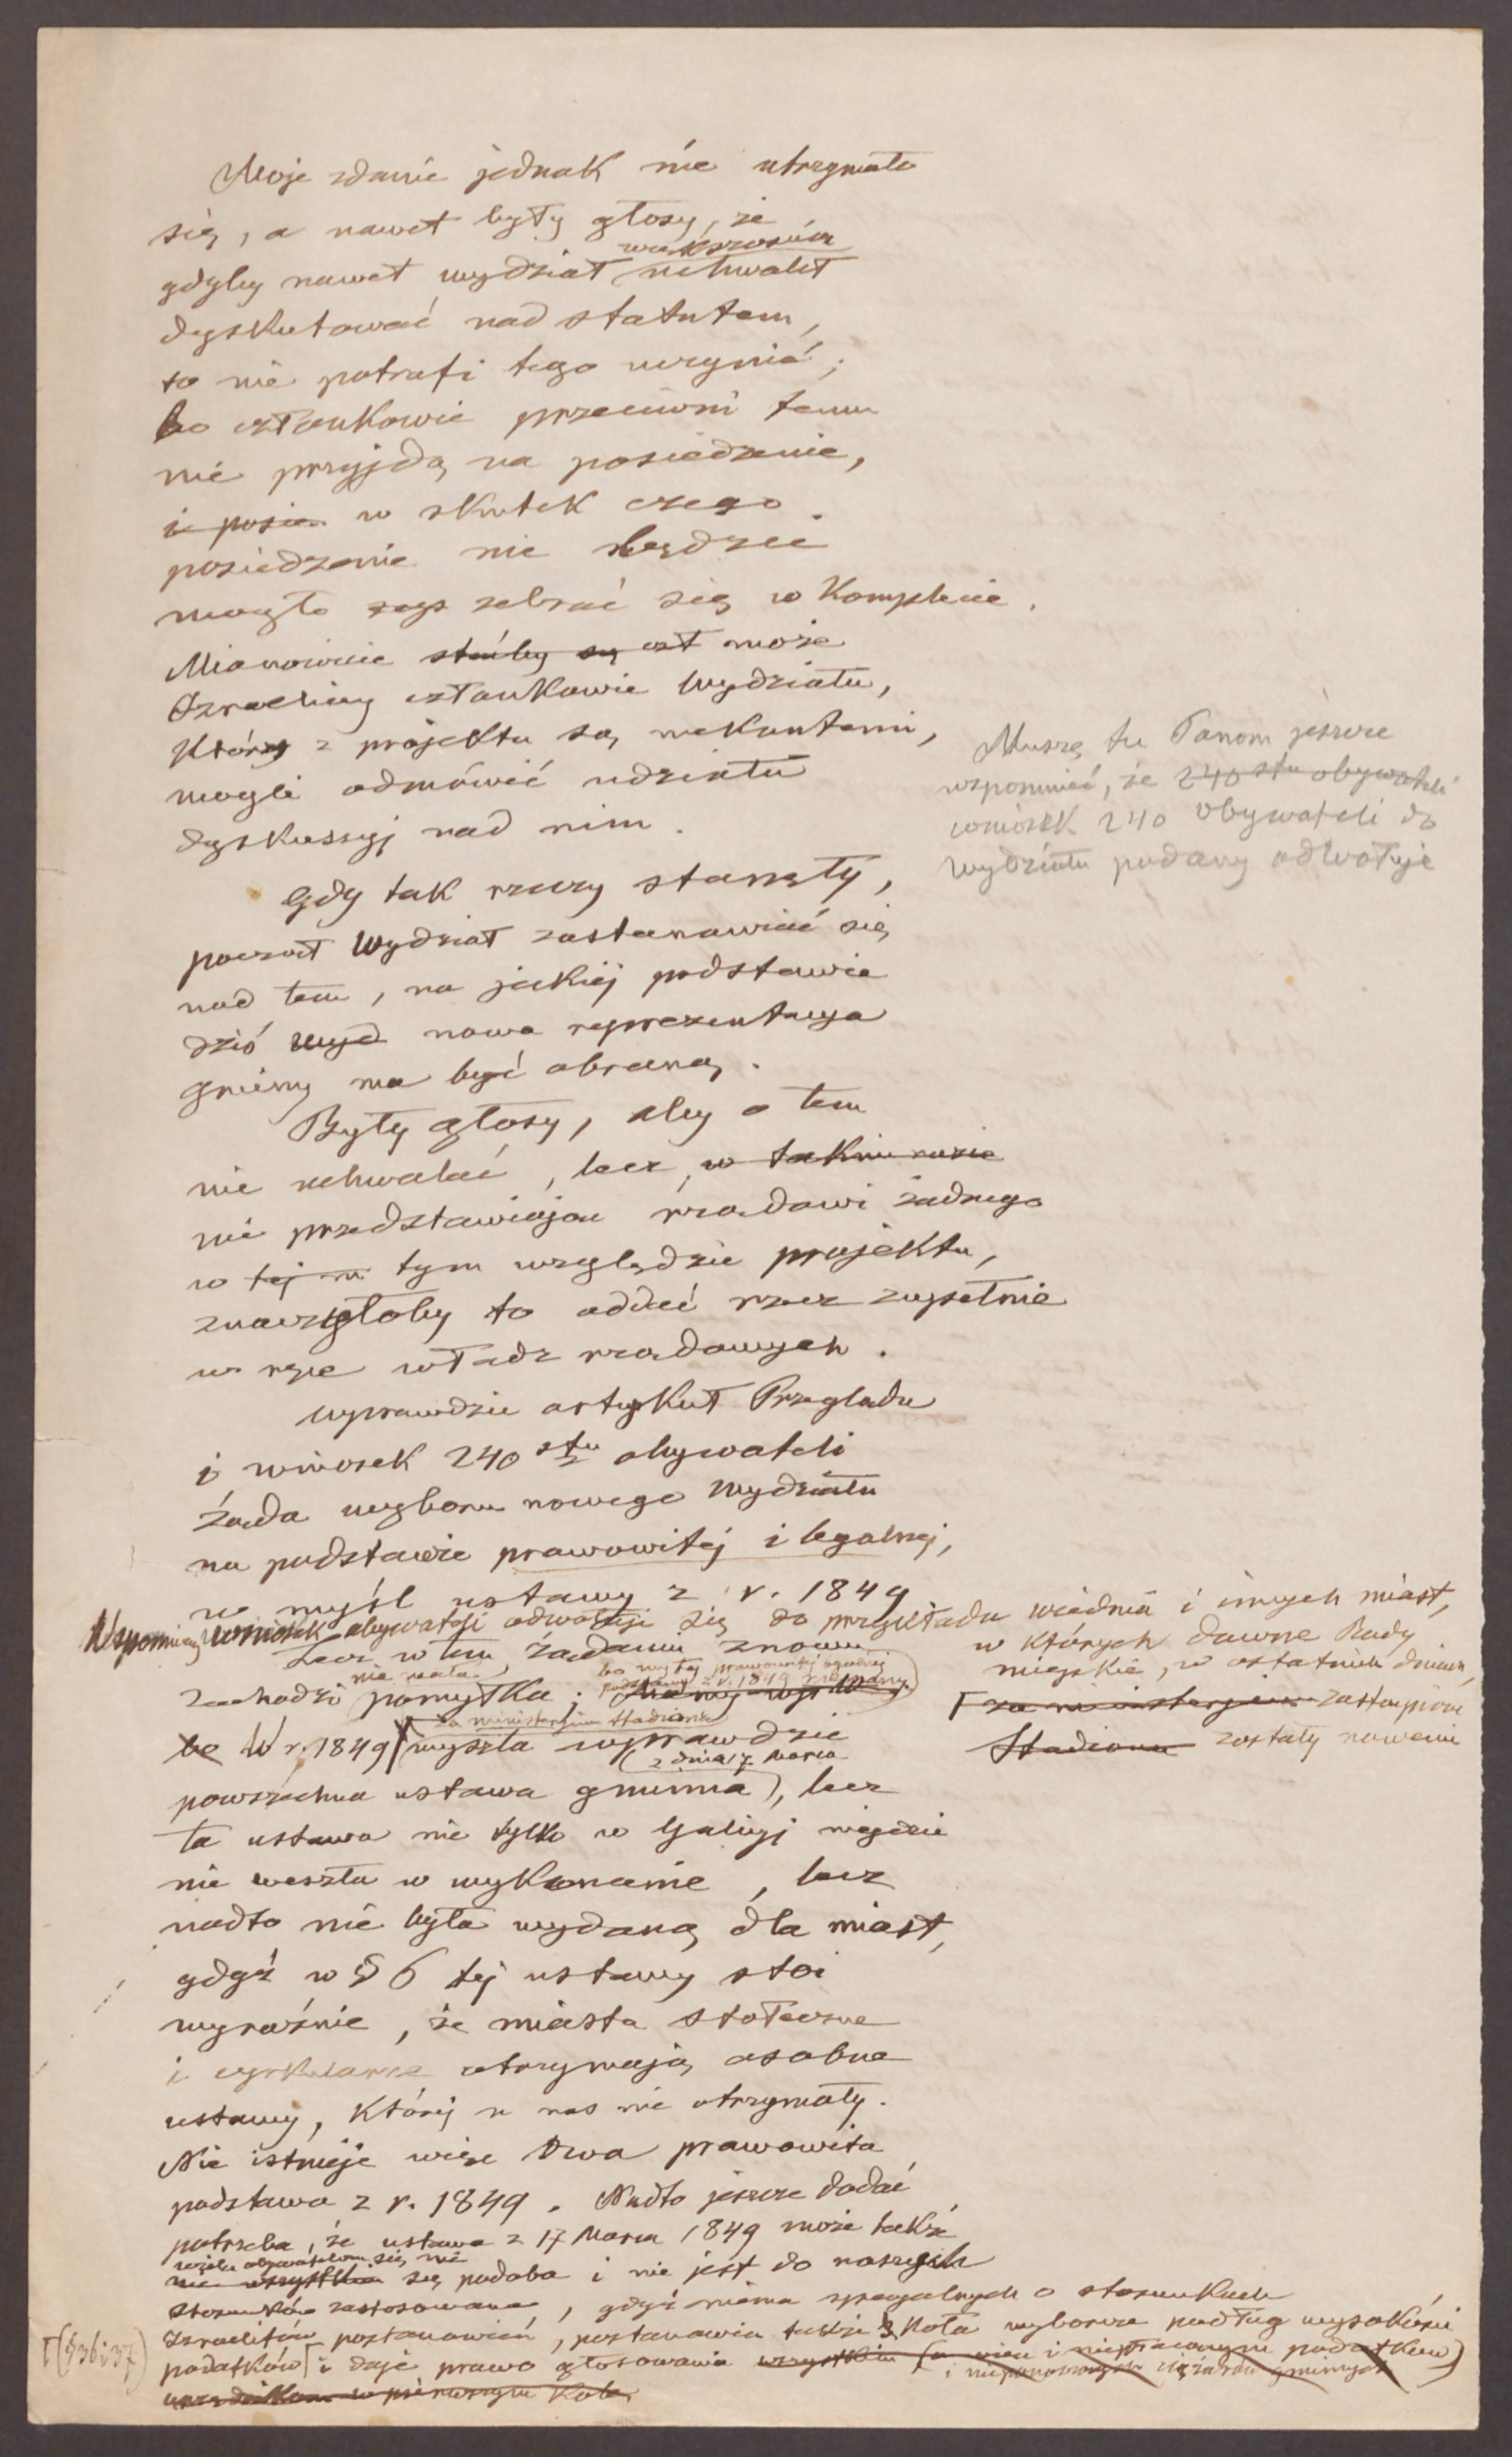 Moje zdanie jednak nie utrzymało
się, a nawet były głosy, że
większością
gdyby nawet wydział uchwalił
dyskutować nad statutem,
to nie potrafi tego uczynić;
bo członkowie przeciwni temu
nie przyjdą na posiedzenie,
i posie w skutek czego
posiedzenie nie będzie
mogło zebrać się w Komplecie.
Mianowicie może
Izraeliccy członkowie Wydziatu,
którzy z projektu są niekontenci,
mogli odmówić udziału
dyskussyj nad nim.
Muszę tu Panom jeszcze
wspomnieć, że 240 stu obywateli
wniosek 240 obywateli do
wydziału podany odwołuje
Gdy tak rzeczy stanęły,
począł Wydział zastanawiać się
nad tem, na jakiej podstawie
dziś wyd nowa reprezentacya
gminy ma być obraną.
Były głosy, aby o tem
nie uchwalać, lecz, w takim razie
nie przedstawiając rządowi żadnego
w tej m tym względzie projektu,
znaczyłoby to oddać rzecz zupełnie
w ręce władz rządowych.
Wprawdzie artykuł Przeglądu
i wniosek 240 stu obywateli
żąda wyboru nowego Wydziału
na podstawie prawowitej i legalnej,
w myśl ustawy z r. 1849
Wspomniany wniosek obywateli odwołuje się do przykładu wiednia i innych miast,
w których dawne Rady
miejskie, w ostatnich dniach,
za ministerjum zastąpione
Stadiona zostały nowemi
Lecz w tem żądaniu znowu
nie mała
bo my tej prawowitej legalnej
podstawy z r. 1849 nie mamy
zachodzi pomyłka;
za ministerjum Stadiona
bo W r. 1849 wyszła wprawdzie
(z dnia 17 Marca
powszechna ustawa gminna), lecz
ta ustawa nie tylko w Galicyj nigdzie
nie weszła w wykonanie, lecz
nadto nie była wydaną dla miast,
gdyż w § 6 tej ustawy stoi
wyraźnie, że miasta stołeczne
i cyrkularne otrzymają osobne
ustawy, której u nas nie otrzymały.
Nie istnieje więc owa prawowita
podstawa z r. 1849. Nadto jeszcze dodać
potrzeba, że ustawa z 17 Marca 1849 może także
wielu obywatelom się nie
nie wszystkim się podoba i nie jest do naszych
stosunków zastosowana, gdyż niema specyalnych o stosunkach
Izraelitów postanowień, postanawia także 3 Koła wyborcze podług wysokości
(§ 36 i 37)
podatków i daje prawo głosowania wszystkim
i nieponoszących ciężarów gminnych
urzędnikom w pierwszym Kole